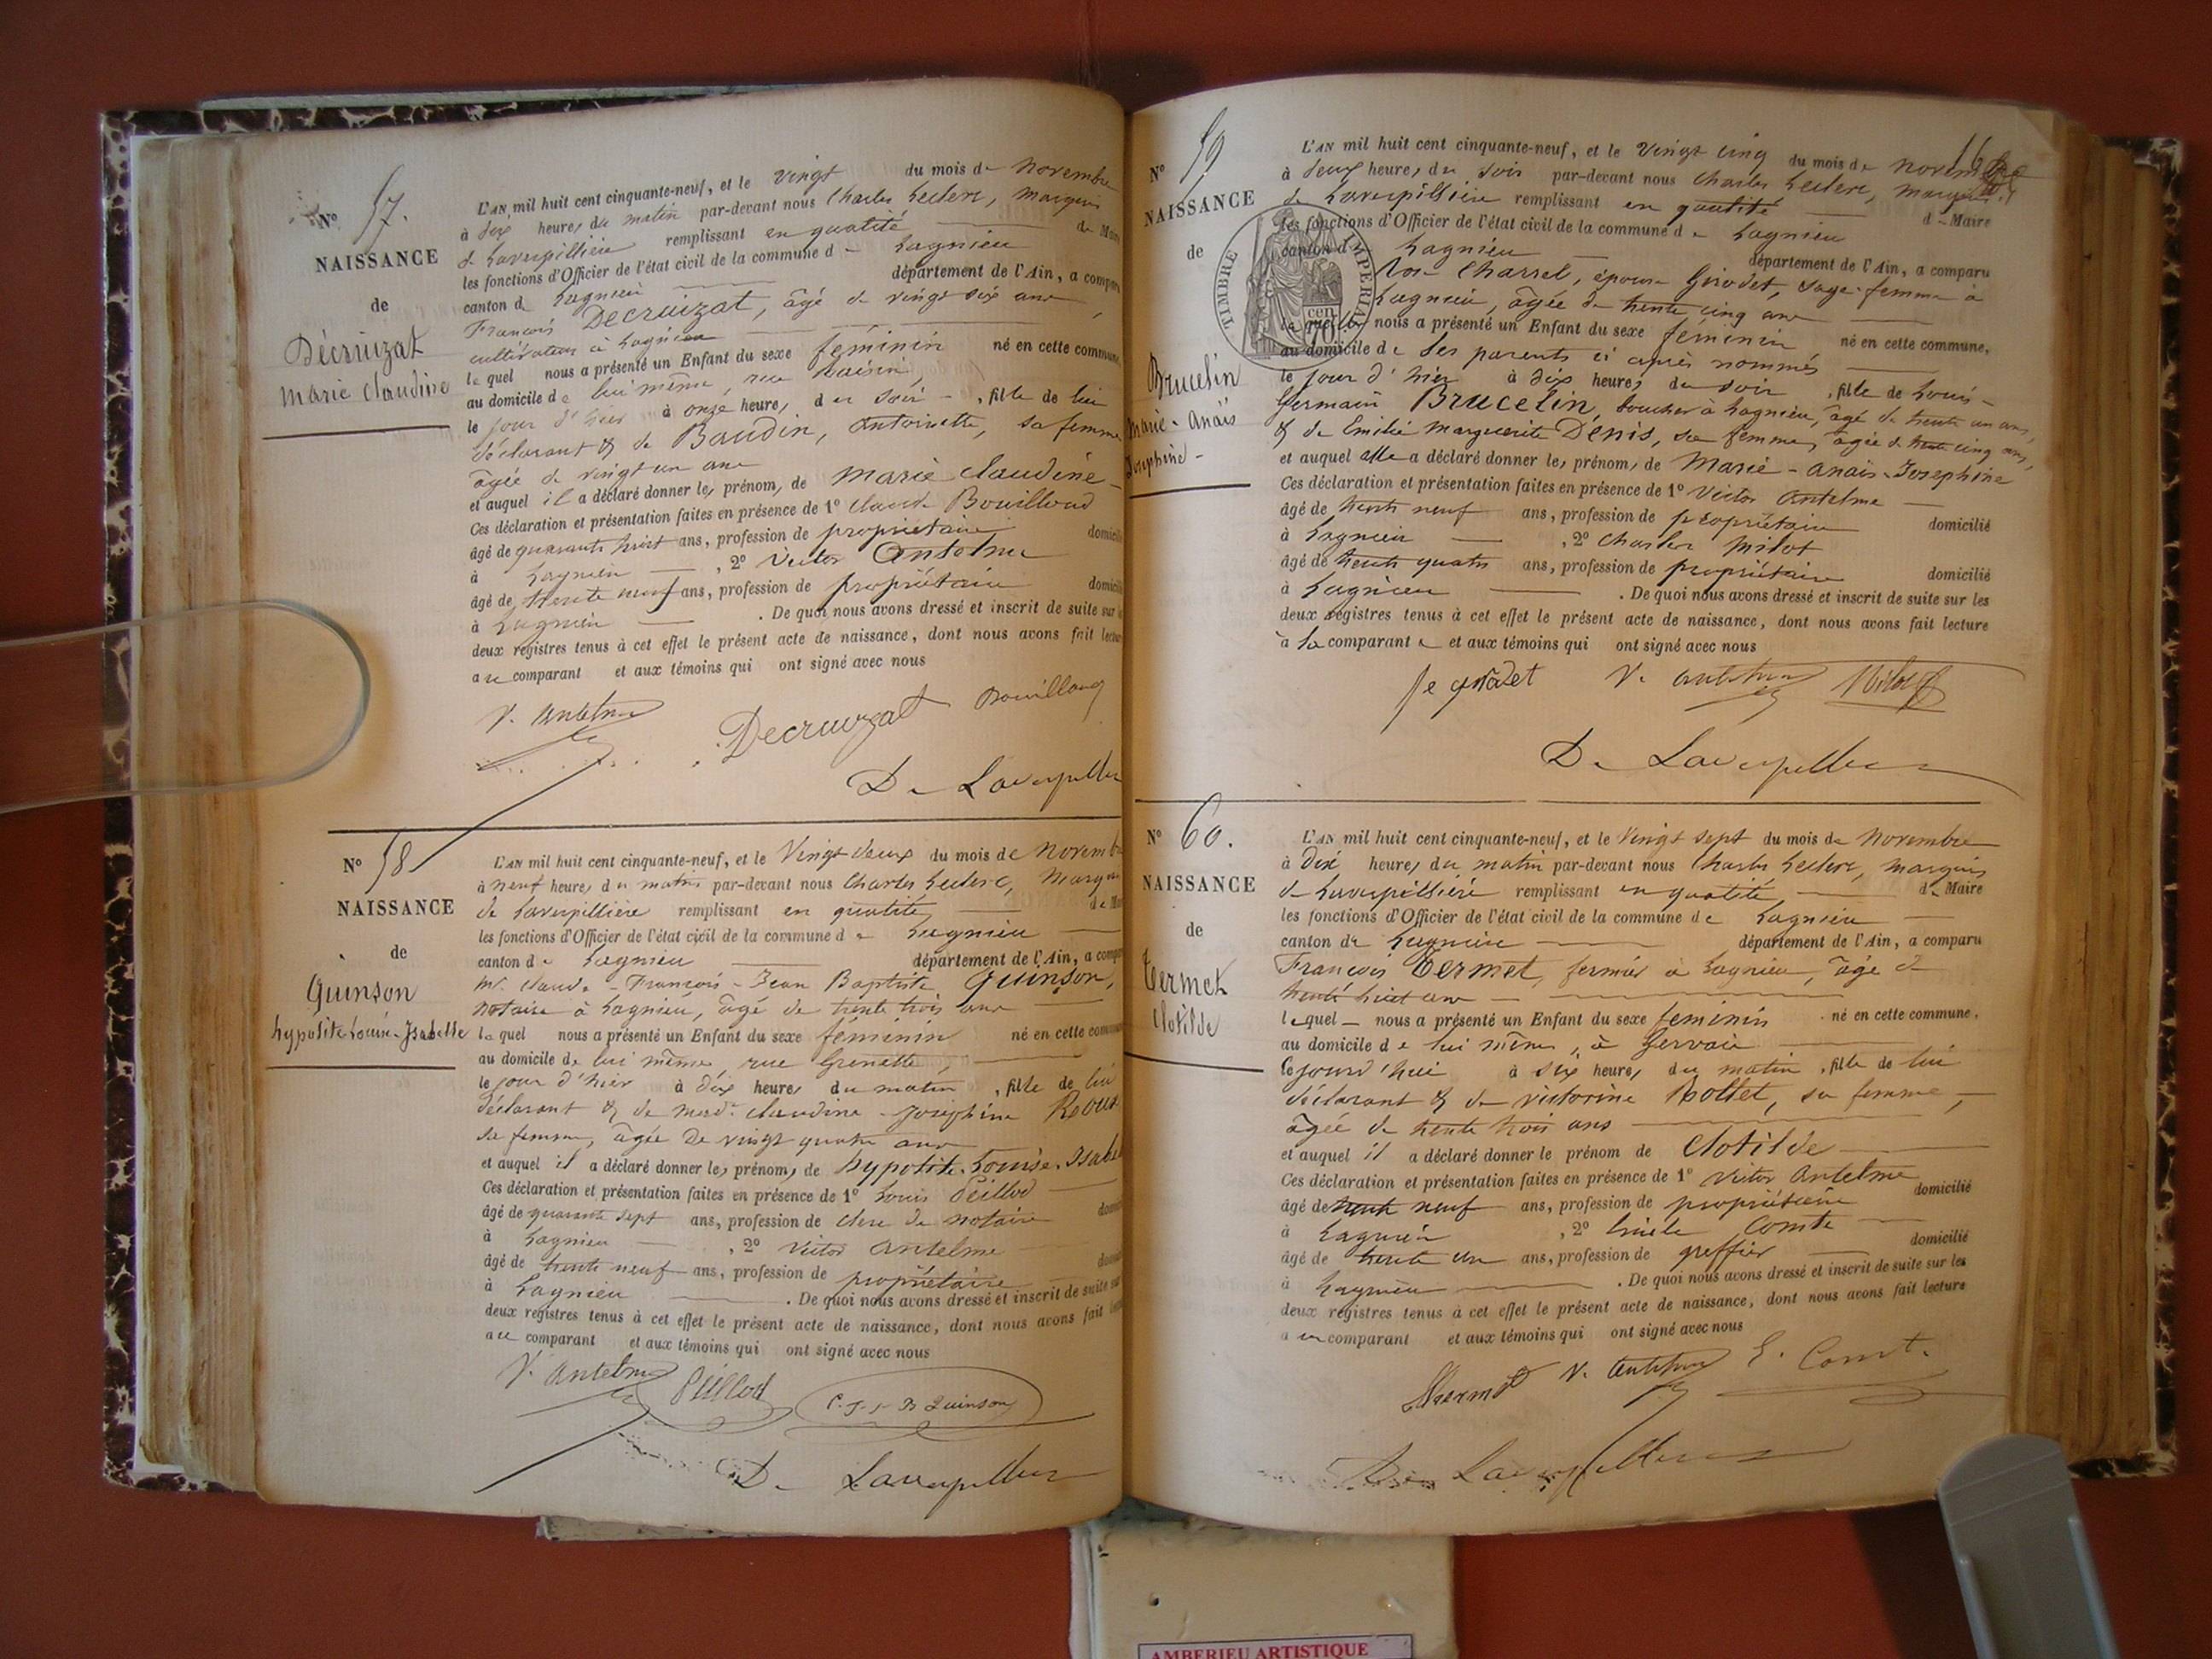 N° 57.
NAISSANCE
de
Décruizat
Marie Claudine
L'AN mil huit cent cinquante-neuf, et le vingt du mois de novembre
à dix heures du matin par-devant nous Charles Leclerc, marquis
de Laverpillière remplissant en qualité de Maire
les fonctions d'Officier de l'état civil de la commune de Lagnieu
canton de Lagnieu département de l'Ain, a comparu
François Decruizat, âgé de vingt six ans,
cultivateur à Lagnieu
lequel nous a présenté un Enfant du sexe féminin né en cette commune
au domicile de lui même, rue
le jour d'hier à onze heures du soir, fille de lui
déclarant & de Baudin, Antoinette, sa femme
âgée de vingt un ans
et auquel il a déclaré donner les prénoms de Marie Claudine
Ces déclaration et présentation faites en présence de 1° Claude Bouilloud
âgé de quarante huit ans, profession de propriétaire domicilié
à Lagnieu, 2° Victor Antelme
âgé de trente neuf ans, profession de propriétaire domicilié
à Lagnieu. De quoi nous avons dressé et inscrit de suite sur
deux registres tenus à cet effet le présent acte de naissance, dont nous avons fait lecture
au comparant et aux témoins qui ont signé avec nous
V. Antelme Decruizat Bouilloud
De Laverpillière
N° 58
NAISSANCE
de
Quinson
hypolite Louise-Isabelle
L'AN mil huit cent cinquante-neuf, et le vingt deux du mois de novembre
à neuf heures du matin par-devant nous Charles Leclerc, marquis
de Laverpillière remplissant en qualité de Maire
les fonctions d'Officier de l'état civil de la commune de Lagnieu
canton de Lagnieu département de l'Ain, a comparu
Mr. Claude-François-Jean Baptiste Quinson,
notaire à Lagnieu, âgé de trente trois ans
lequel nous a présenté un Enfant du sexe féminin né en cette commune
au domicile de lui même, rue Grenette,
le jour d'hier à dix heures du matin, fille de lui
déclarant & de mad.e Claudine-Joséphine Roux
sa femme, âgée de vingt quatre ans
et auquel il a déclaré donner les prénoms de hypolite-Louise-Isabel
Ces déclaration et présentation faites en présence de 1° Louis Peillod
âgé de quarante sept ans, profession de clerc de notaire
à Lagnieu, 2° Victor Antelme
âgé de trente neuf ans, profession de propriétaire
à Lagnieu. De quoi nous avons dressé et inscrit de suite sur
deux registres tenus à cet effet le présent acte de naissance, dont nous avons fait
au comparant et aux témoins qui ont signé avec nous
V. Antelme Peillod C.-F.-J-B Quinson
De Laverpillière
N° 59
NAISSANCE
de
Brucelin
Marie-Anaïs
Josephine-
TIMBRE IMPERIAL
L'AN mil huit cent cinquante-neuf, et le vingt cinq du mois de novembre
à deux heures du soir par-devant nous Charles Leclerc, marquis
de Laverpillière remplissant en qualité de Maire
les fonctions d'Officier de l'état civil de la commune de Lagnieu
canton de Lagnieu département de l'Ain, a comparu
Rose Charrel, épouse Girodet, sage-femme à
Lagnieu, âgée de trente cinq ans
laquelle nous a présenté un Enfant du sexe féminin né en cette commune,
au domicile de ses parents ci après nommés
le jour d'hier à dix heures du soir, fille de Louis-
Germain Brucelin, boucher à Lagnieu, âgé de trente un ans,
& de Emilie Marguerite Denis, sa femme, âgée de trente cinq ans,
et auquel elle a déclaré donner les prénoms de Marie-Anaïs-Josephine
Ces déclaration et présentation faites en présence de 1° Victor Antelme
âgé de trente neuf ans, profession de propriétaire domicilié
à Lagnieu, 2° Charles Milot
âgé de trente quatre ans, profession de propriétaire domicilié
à Lagnieu. De quoi nous avons dressé et inscrit de suite sur les
deux registres tenus à cet effet le présent acte de naissance, dont nous avons fait lecture
à la comparante et aux témoins qui ont signé avec nous
V. Antelme Milot
De Laverpillière
N° 60.
NAISSANCE
de
Termet
Clotilde
L'AN mil huit cent cinquante-neuf, et le vingt sept du mois de novembre
à dix heures du matin par-devant nous Charles Leclerc, marquis
de Laverpillière remplissant en qualité de Maire
les fonctions d'Officier de l'état civil de la commune de Lagnieu
canton de Lagnieu département de l'Ain, a comparu
François Termet, fermier à Lagnieu, âgé de
trente huit ans
lequel nous a présenté un Enfant du sexe féminin né en cette commune,
au domicile de lui même, à Gervais
cejourd'hui à six heures du matin, fille de lui
déclarant & de Victorine Bollet, sa femme,
âgée de trente trois ans
et auquel il a déclaré donner le prénom de Clotilde
Ces déclaration et présentation faites en présence de 1° Victor Antelme
âgé de trente neuf ans, profession de propriétaire domicilié
à Lagnieu, 2° Emile Comte
âgé de trente un ans, profession de greffier domicilié
à Lagnieu. De quoi nous avons dressé et inscrit de suite sur les
deux registres tenus à cet effet le présent acte de naissance, dont nous avons fait lecture
au comparant et aux témoins qui ont signé avec nous
V. Antelme E. Comte
De Laverpillière
AMBERIEU ARTISTIQUE